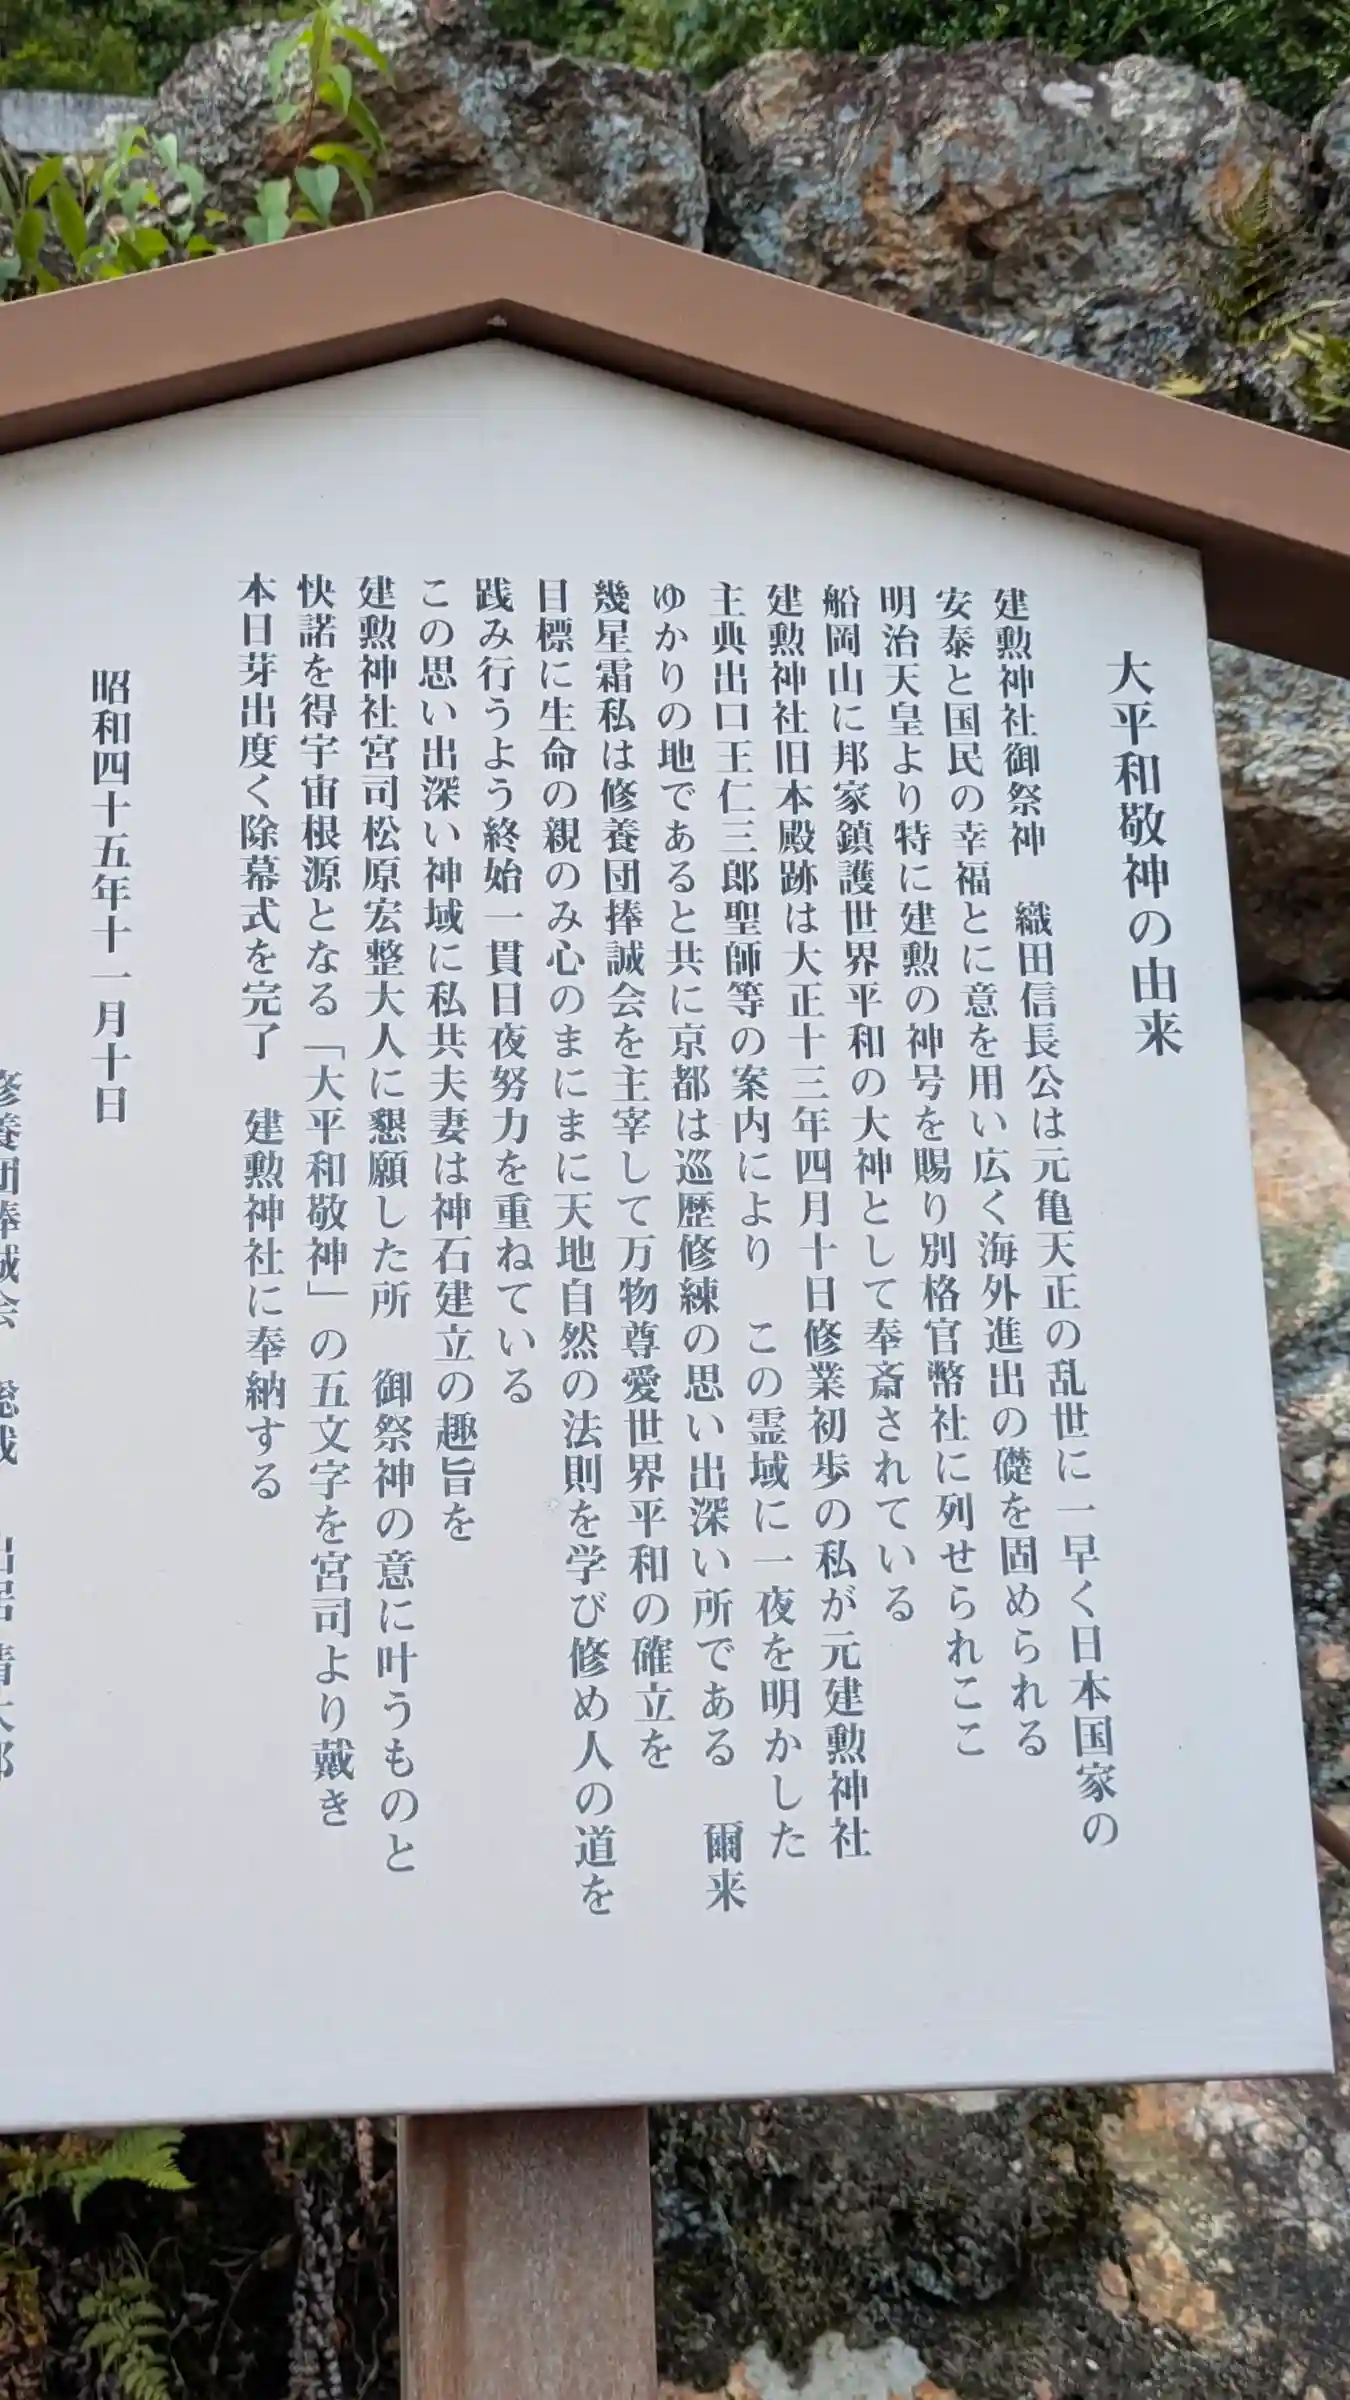 大平和敬神の由来
建勲神社御祭神　織田信長公は元亀天正の乱世に一早く日本国家の
安泰と国民の幸福とに意を用い広く海外進出の礎を固められる
明治天皇より特に建勲の神号を賜り別格官幣社に列せられここ
船岡山に邦家鎮護世界平和の大神として奉斎されている
建勲神社旧本殿跡は大正十三年四月十日修業初歩の私が元建勲神社
主典出口王仁三郎聖師等の案内により　この霊域に一夜を明かした
ゆかりの地であると共に京都は巡歴修練の思い出深い所である　爾来
幾星霜私は修養団捧誠会を主宰して万物尊愛世界平和の確立を
目標に生命の親のみ心のまにまに天地自然の法則を学び修め人の道を
践み行うよう終始一貫日夜努力を重ねている
この思い出深い神域に私共夫妻は神石建立の趣旨を
建勲神社宮司松原宏整大人に懇願した所　御祭神の意に叶うものと
快諾を得宇宙根源となる「大平和敬神」の五文字を宮司より戴き
本日芽出度く除幕式を完了　建勲神社に奉納する
昭和四十五年十一月十日
修養団捧誠会　総裁　出居清太郎